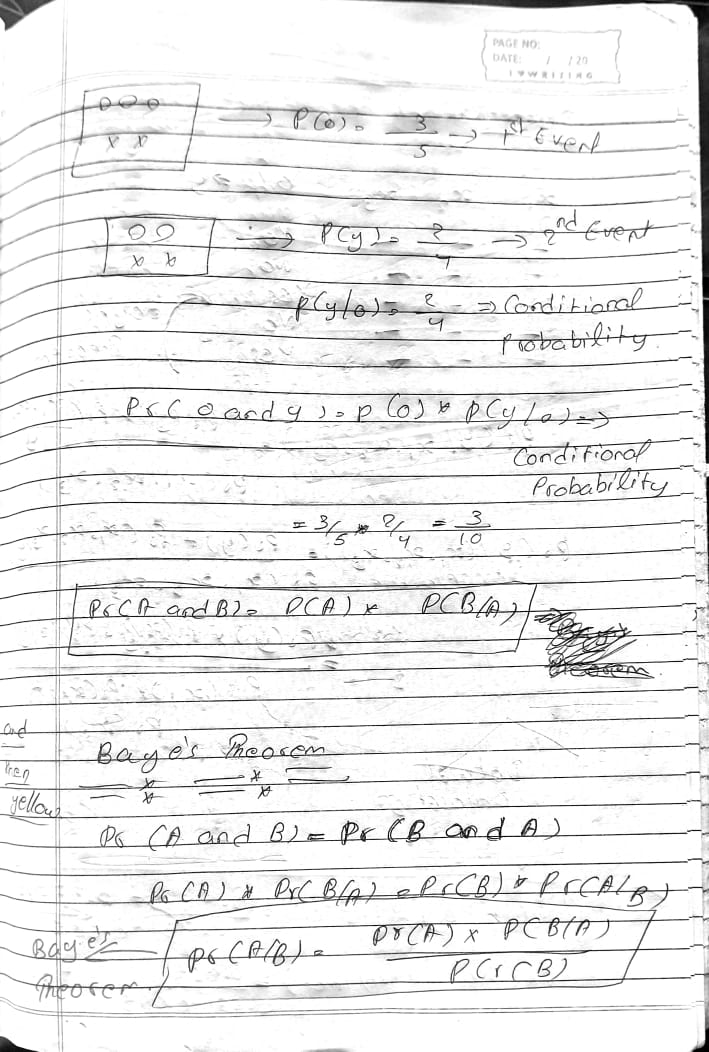 PAGE NO:
DATE: / /20
O O O
x x
→ P(O) = 3/5 → 1st Event
O O
x x
→ P(y) = 2/4 → 2nd Event
P(y/o) = 2/4 ⇒ Conditional
Probability
Pr( o and y ) = p (o) * p(y/o) =>
Conditional
Probability
= 3/5 * 2/4 = 3/10
Pr(A and B) = P(A) * P(B/A)
and
then
yellow
Baye's Theorem
Pr (A and B) = Pr (B and A)
Pr (A) * Pr(B/A) = Pr(B) * Pr(A/B)
Baye's
Theorem
Pr (A/B) = Pr(A) x P(B/A)
P(r(B)